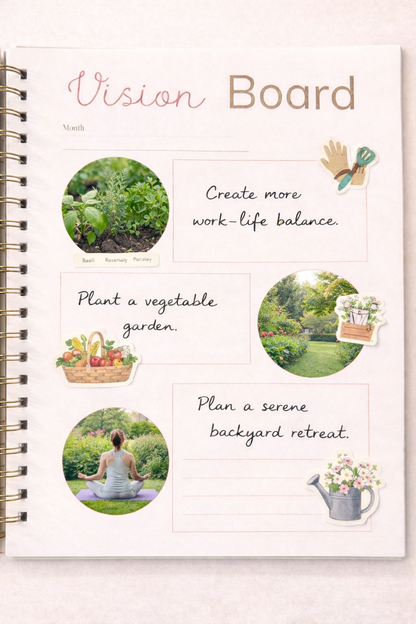 Vision Board
Month
Create more
work-life balance.
Basil Rosemary Parsley
Plant a vegetable
garden.
Plan a serene
backyard retreat.